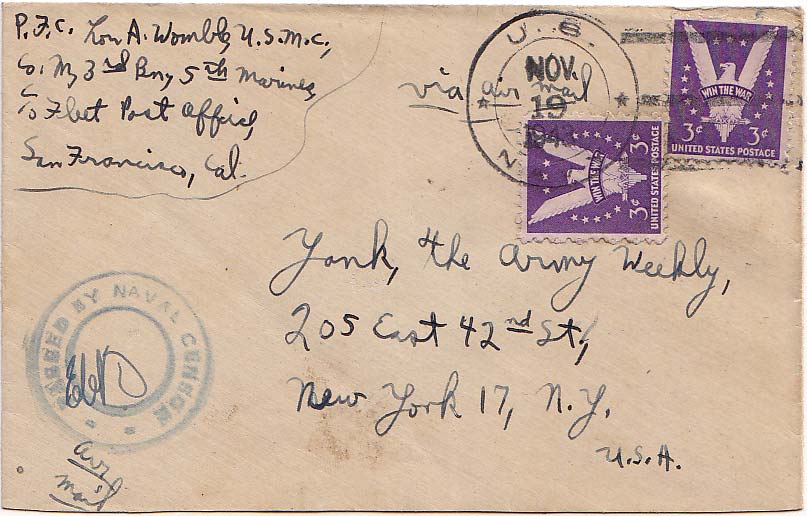 P.F.C. Lon A. Womble, U.S.M.C.,
Co. M, 3rd Bn, 5th Marines,
℅ Fleet Post Office,
San Francisco, Cal.
via air mail
U.S.
NOV.
19
1943
N
WIN THE WAR
3¢ 3¢
UNITED STATES POSTAGE
WIN THE WAR
3¢ 3¢
UNITED STATES POSTAGE
Yank, the Army Weekly,
205 East 42nd St.,
New York 17, N.Y.
U.S.A.
PASSED BY NAVAL CENSOR
air
mail